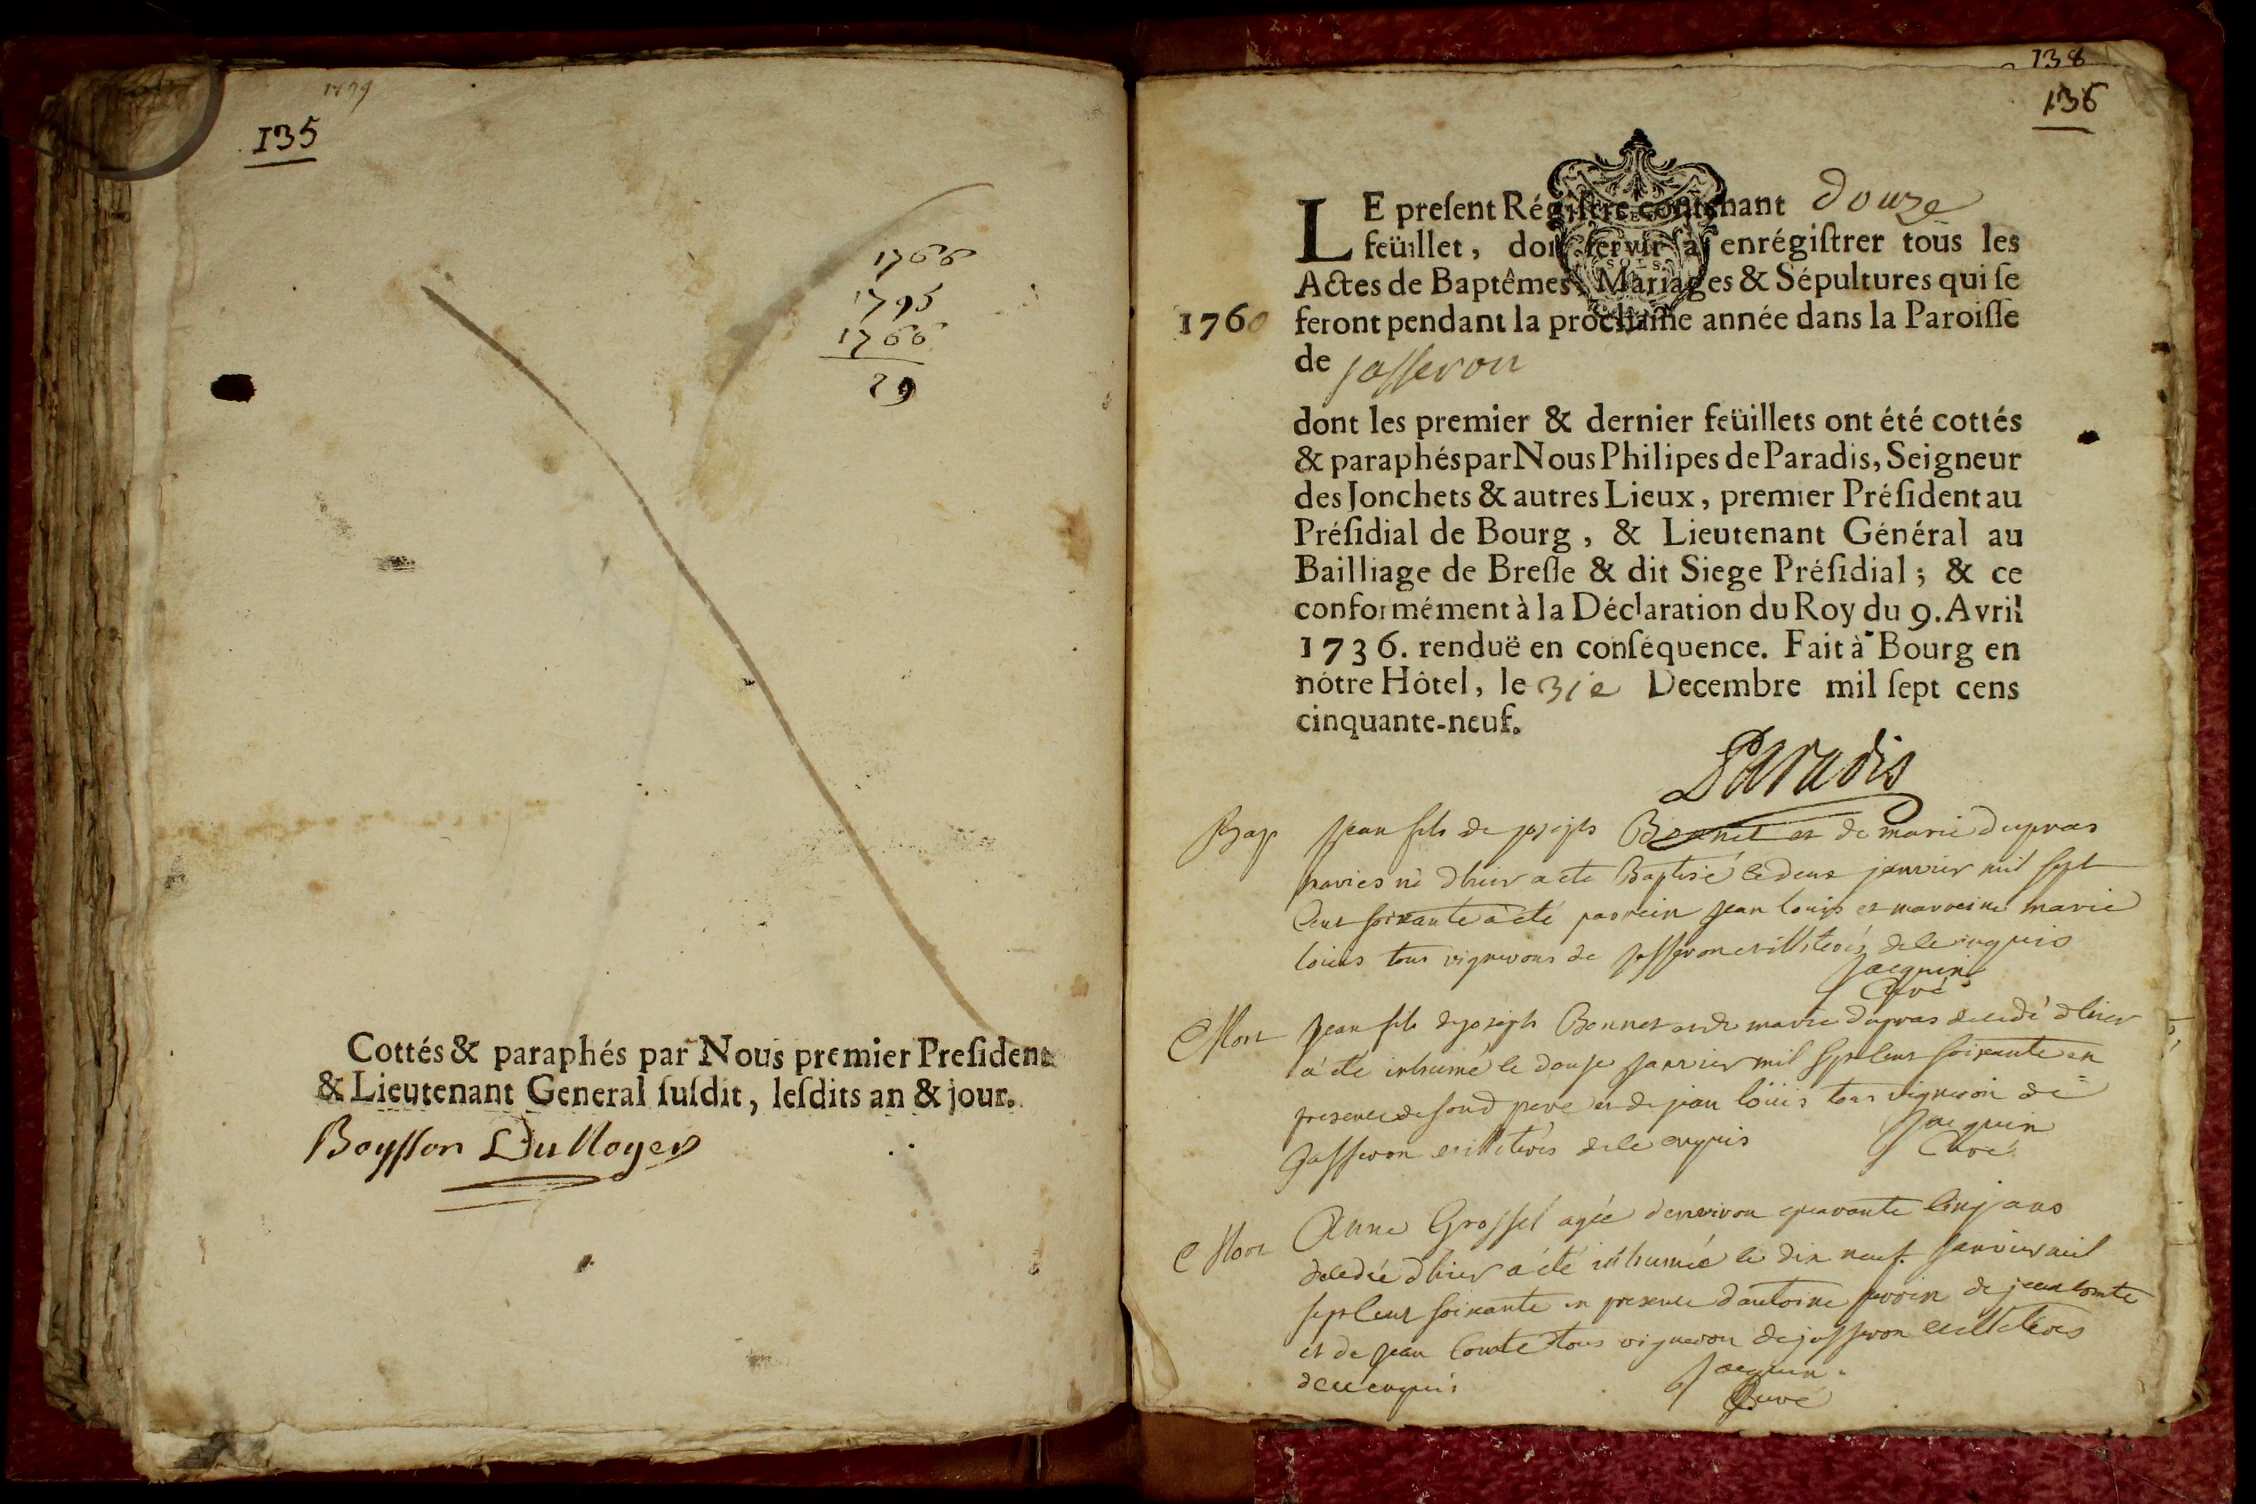 1779
135
1766
1795
1766
29
Cottés & paraphés par Nous premier President
& Lieutenant General susdit, lesdits an & jour.
Boysson Du Noyer
138
136
LE present Régistre contenant douze
feüillet, doit servir à enrégistrer tous les
Actes de Baptêmes, Mariages & Sépultures qui se
1760 feront pendant la prochaine année dans la Paroisse
de jasseron
dont les premier & dernier feüillets ont été cottés
& paraphés par Nous Philipes de Paradis, Seigneur
des Jonchets & autres Lieux, premier Président au
Présidial de Bourg, & Lieutenant Général au
Bailliage de Bresse & dit Siege Présidial; & ce
conformément à la Déclaration du Roy du 9. Avril
1736. renduë en conséquence. Fait à Bourg en
nótre Hôtel, le 31e Decembre mil sept cens
cinquante-neuf.
Paradis
Bap Jean fils de joseph Bonnet et de marie dupras
mariés né dhier a ete Baptisé le deux janvier mil sept
Cent soixante à eté parrein jean louis et marreine marie
louis tous vignerons de jasseron et illiterés de le enquis
Jacquin
Curé
Mort Jean fils de joseph Bonnet et de marie dupras decedé dhier
a été inhumé le douse janvier mil sept Cent soixante en
presence de sond pere et de jean loüis tous vigneron de
Jasseron et illiterés de le enquis Jacquin
Curé
Mort Anne Grosset agée denviron quarante Cinq ans
decedée dhier a été inhumée le dix neuf janvier mil
sept Cent soixante en presence dantoine de jean Comte
et de jean Comte tous vigneron de jasseron et illiterés
de ce enquis Jacquin
Curé